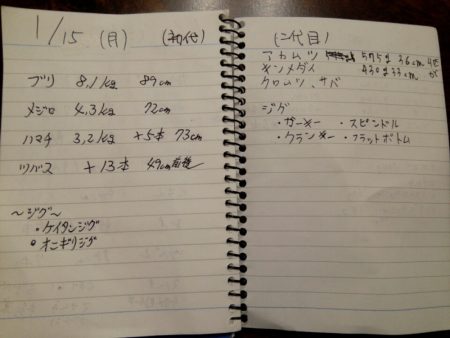 1/15 (月) (初代)
ブリ 8,1kg 89cm
メジロ 4,3kg 72cm
ハマチ 3,2kg +5本 73cm
ツバス +13本 49cm前後
～ジグ～
・ケイタンジグ
・オニギリジグ
(二代目)
アカムツ 575g 36cm 4匹
キンメダイ 430g 33cm
クロムツ、サバ
ジグ
・ガーキー ・スピンドル
・クランキー ・フラットボトム